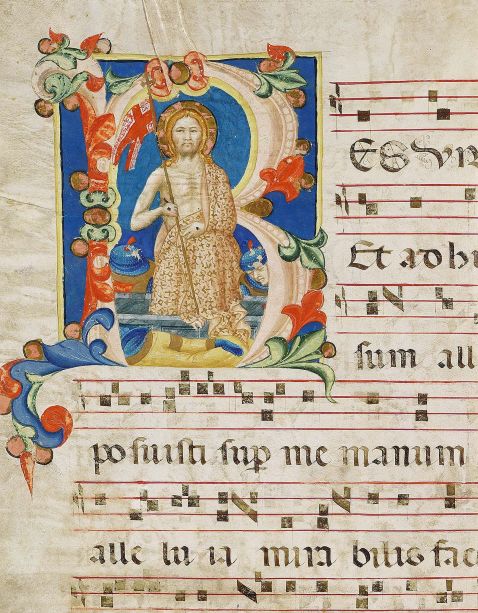 RESUR
Et adhu
sum all
posuisti sup me manum
alle lu ia mira bilis fac